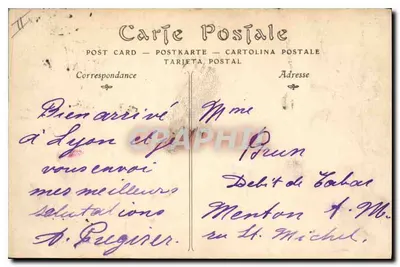 II
Carte Postale
POST CARD — POSTKARTE — CARTOLINA POSTALE
TARJETA POSTAL
Correspondance
Adresse
Bien arrivé
à Lyon et je
vous envoi
mes meilleurs
salutations
Mme
Brun
Debit de Tabac
Menton A. M.
rue St. Michel.
CARTAGRAPHILIE